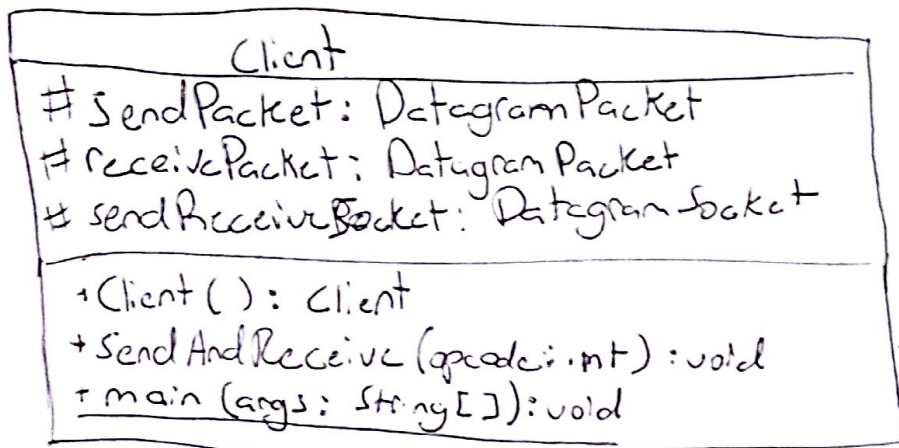 Client
# sendPacket: DatagramPacket
# receivePacket: DatagramPacket
# sendReceiveSocket: DatagramSocket
+ Client ( ): Client
+ SendAndReceive (opcode: int) : void
+ main (args: String[ ]): void